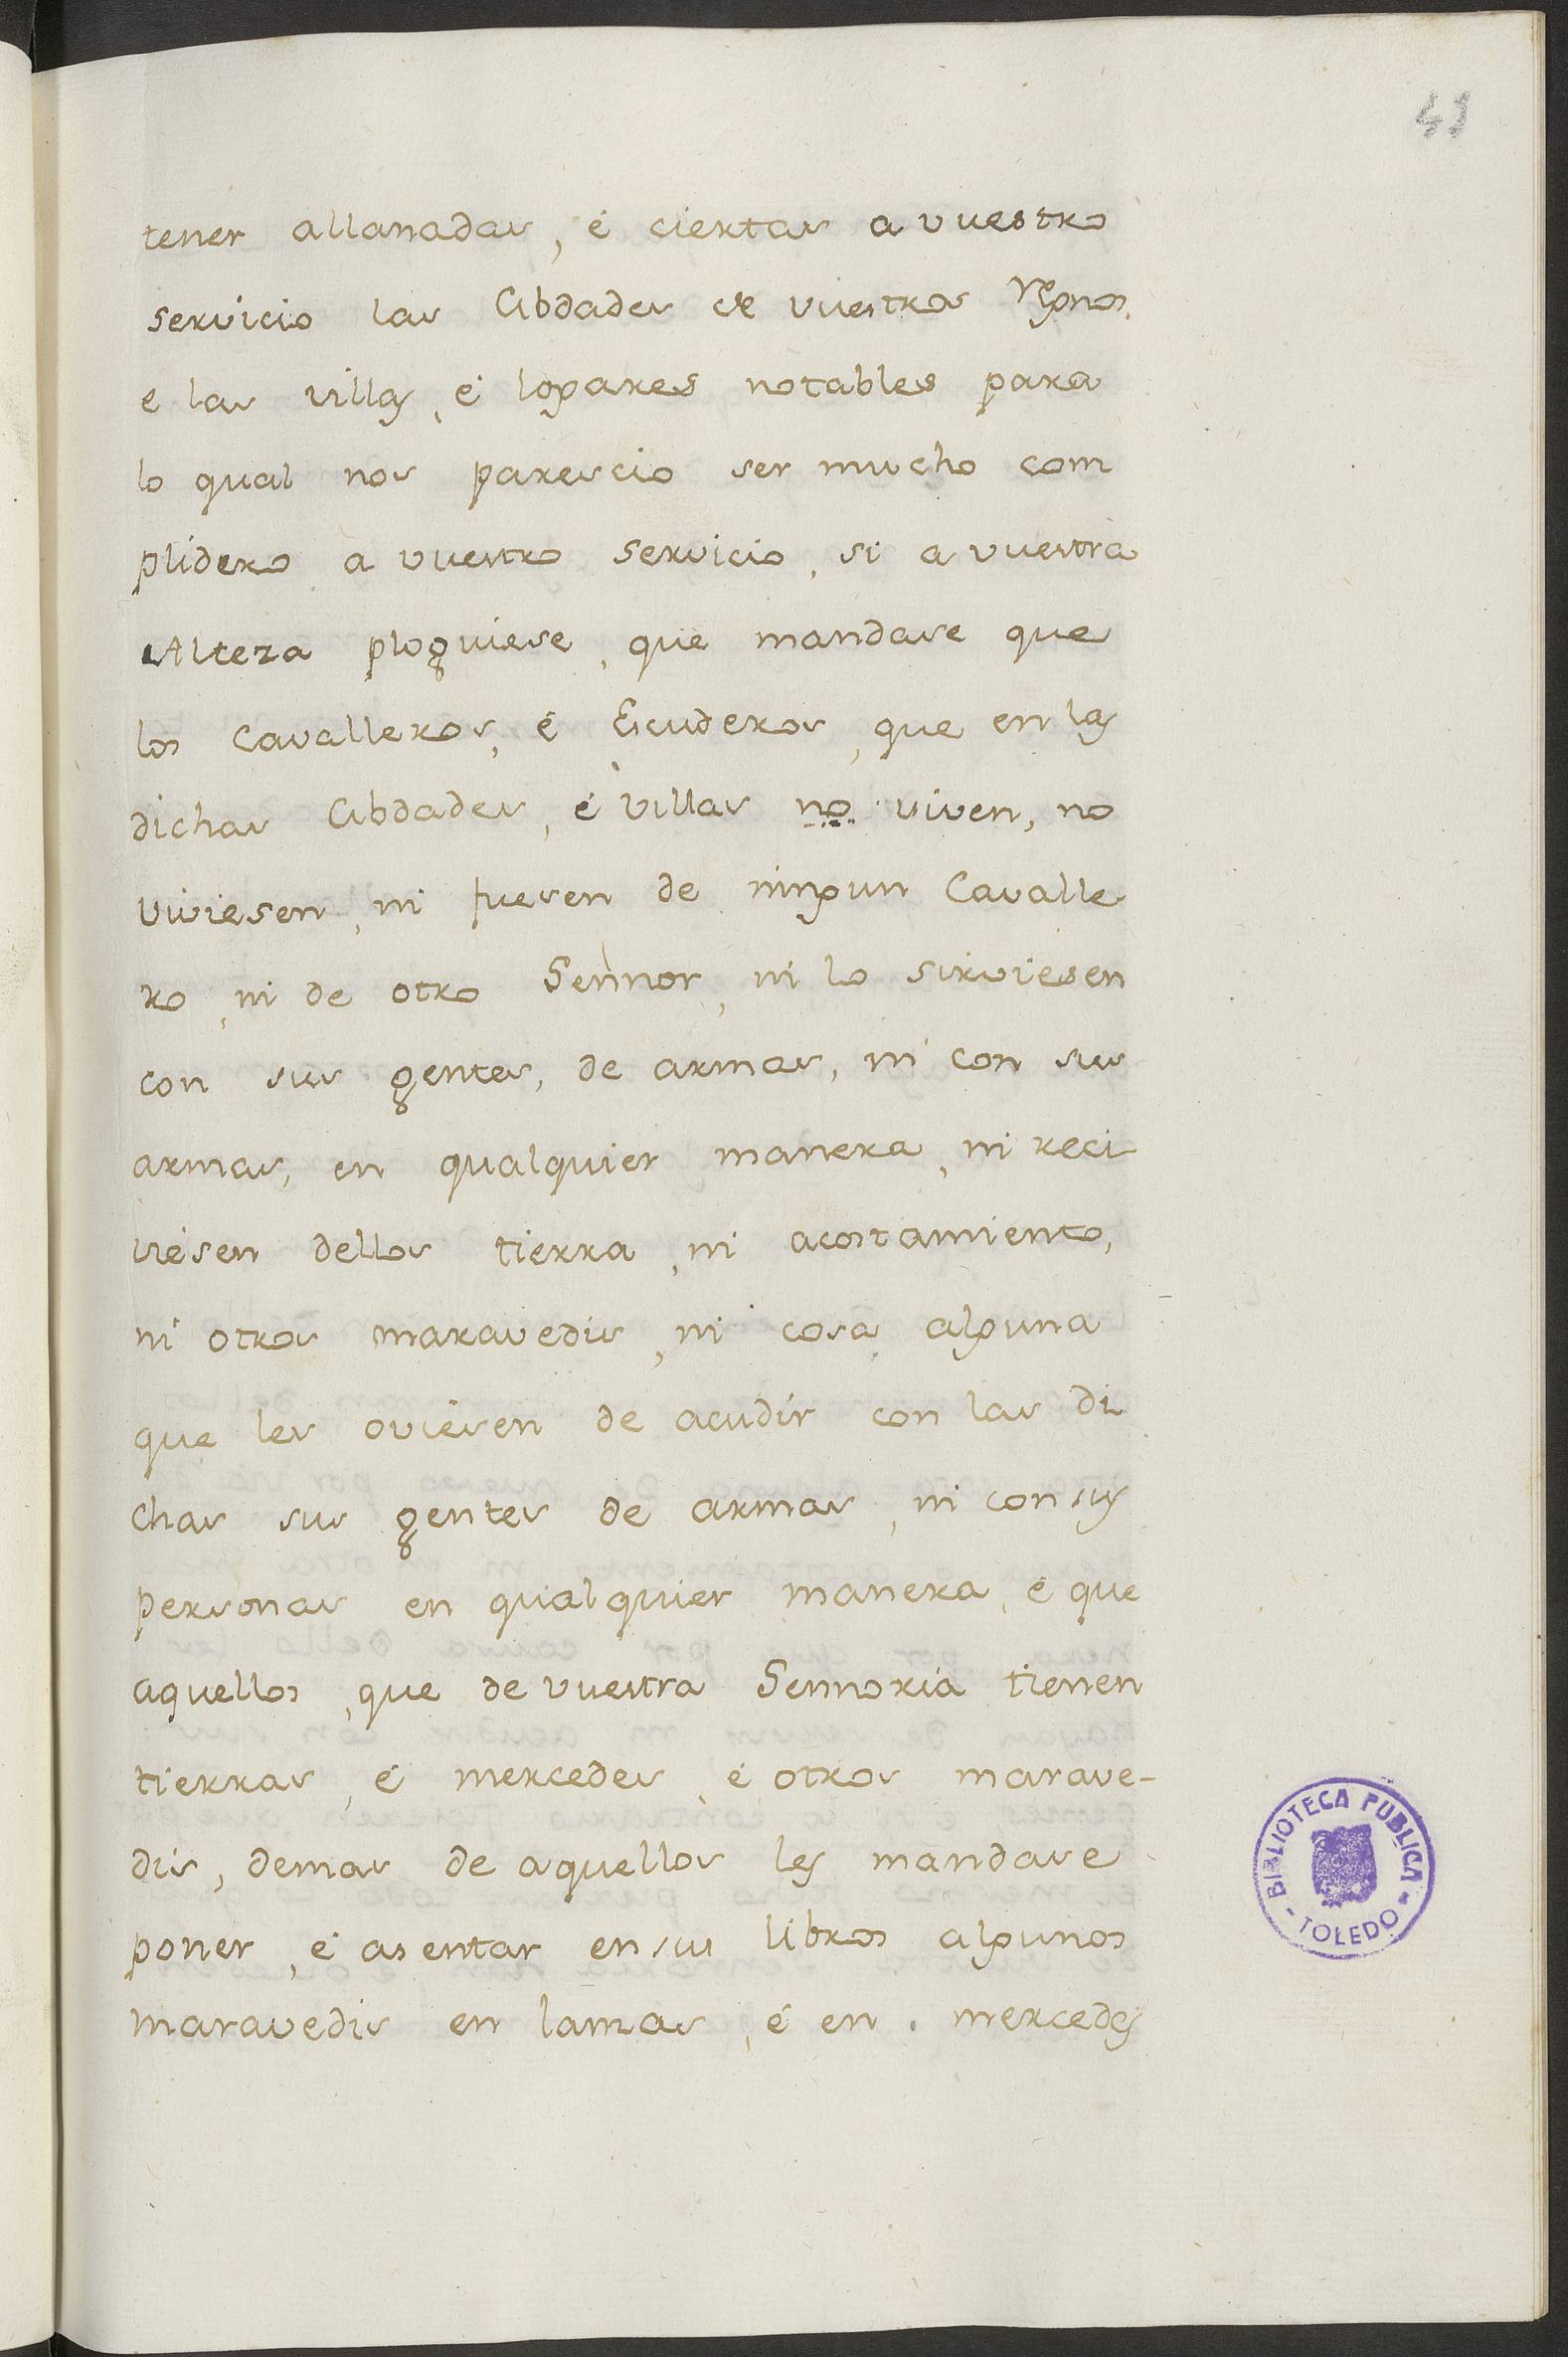 49
tener allanadas, é ciertas a vuestro
servicio las Cibdades de vuestros Regnos,
e las villas, é logares notables para
lo qual nos parescio ser mucho com
plidero a vuestro servicio, si a vuestra
Alteza ploguiese, que mandase que
los Cavalleros, é Escuderos, que en las
dichas Cibdades, é villas no viven, no
viviesen, ni fuesen de ningun Cavalle
ro, ni de otro Sennor, ni lo sirviesen
con sus gentes, de armas, ni con sus
armas, en qualquier manera, ni reci
viesen dellos tierra, ni acostamiento,
ni otros maravedis, ni cosa alguna
que les oviesen de acudir con las di
chas sus gentes de armas, ni con sus
personas en qualquier manera, é que
aquellos, que de vuestra Sennoria tienen
tierras, é mercedes, é otros marave-
dis, demas de aquellos les mandase
poner, é asentar en sus libros algunos
maravedis en lanzas, é en mercedes
BIBLIOTECA PUBLICA
- TOLEDO -